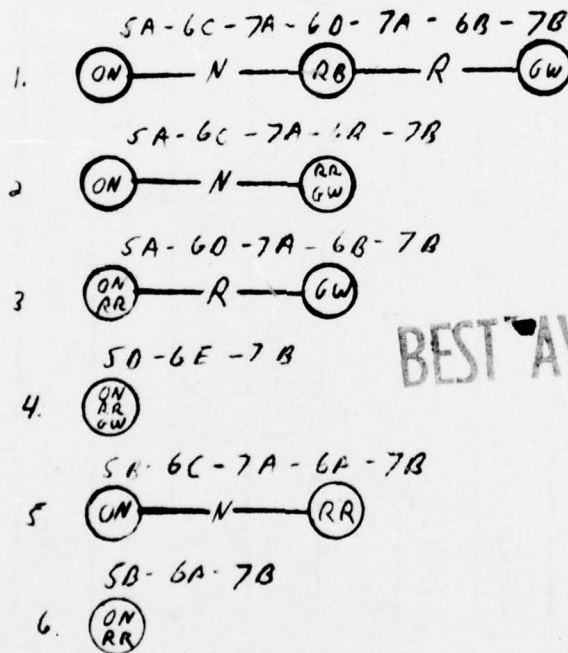 5A-6C-7A-6D-7A-6B-7B
1. ON N RB R GW
5A-6C-7A-6B-7B
2 ON N RR GW
5A-6D-7A-6B-7B
3 ON RR R GW
BEST AV
5D-6E-7B
4. ON RR GW
6C-7A-6A-7B
5 ON N RR
5B-6A-7B
6. ON RR